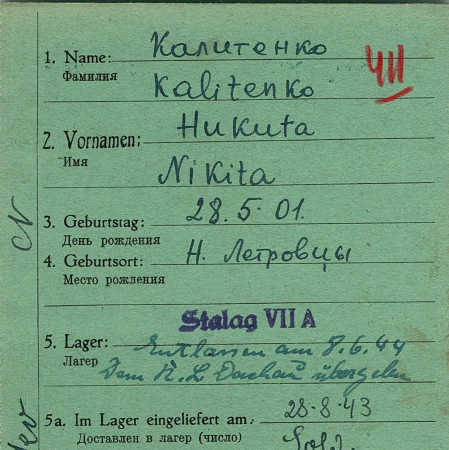 1. Name: Калитенко
Фамилия
Kalitenko
ЧП
2. Vornamen: Никита
Имя
Nikita
3. Geburtstag: 28.5.01.
День рождения
4. Geburtsort: Н. Петровцы
Место рождения
Stalag VII A
5. Lager: Entlassen am 8.6.44
Лагер Dem K. L. Dachau übergeben
5a. Im Lager eingeliefert am: 28-8-43
Доставлен в лагер (число)